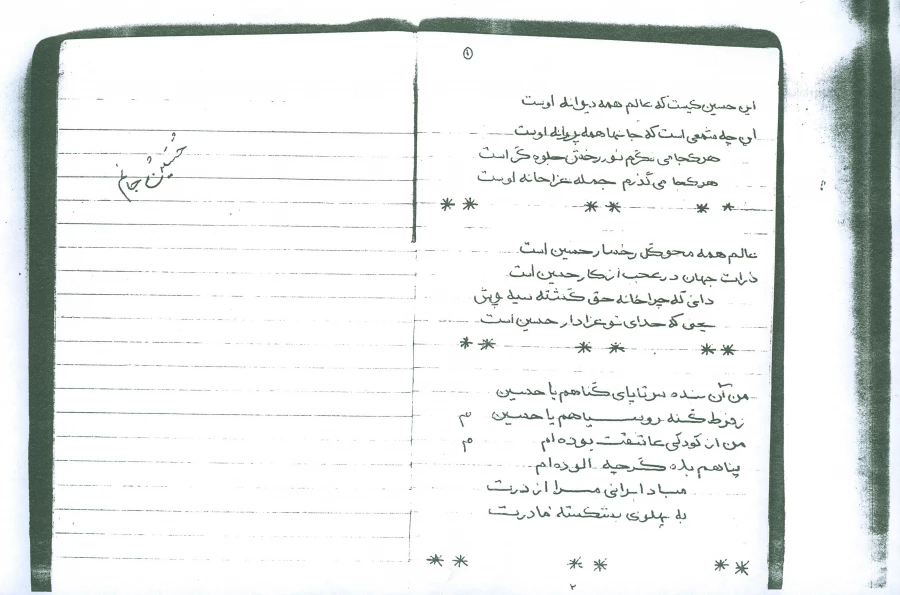 ①
این حسین کیست که عالم همه دیوانه اوست
این چه شمعی است که جانها همه پروانه اوست
هر کجا می نگرم نور رخش جلوه گر است
هر کجا می گذرم جمله عزاخانه اوست
** ** **
عالم همه محو گل رخسار حسین است
ذرات جهان در عجب از کار حسین است
دانی که چرا خانه حق گشته سیه پوش
یعنی که خدای تو عزادار حسین است
** ** **
من آن بنده سر تا پای گناهم یا حسین
ز فرط گنه رو سیاهم یا حسین
من از کودکی عاشقت بوده ام
پناهم بده گرچه آلوده ام
مباد ابرانی مرا از درت
به پهلوی بشکسته مادرت
** ** **
۲
حسین جانم